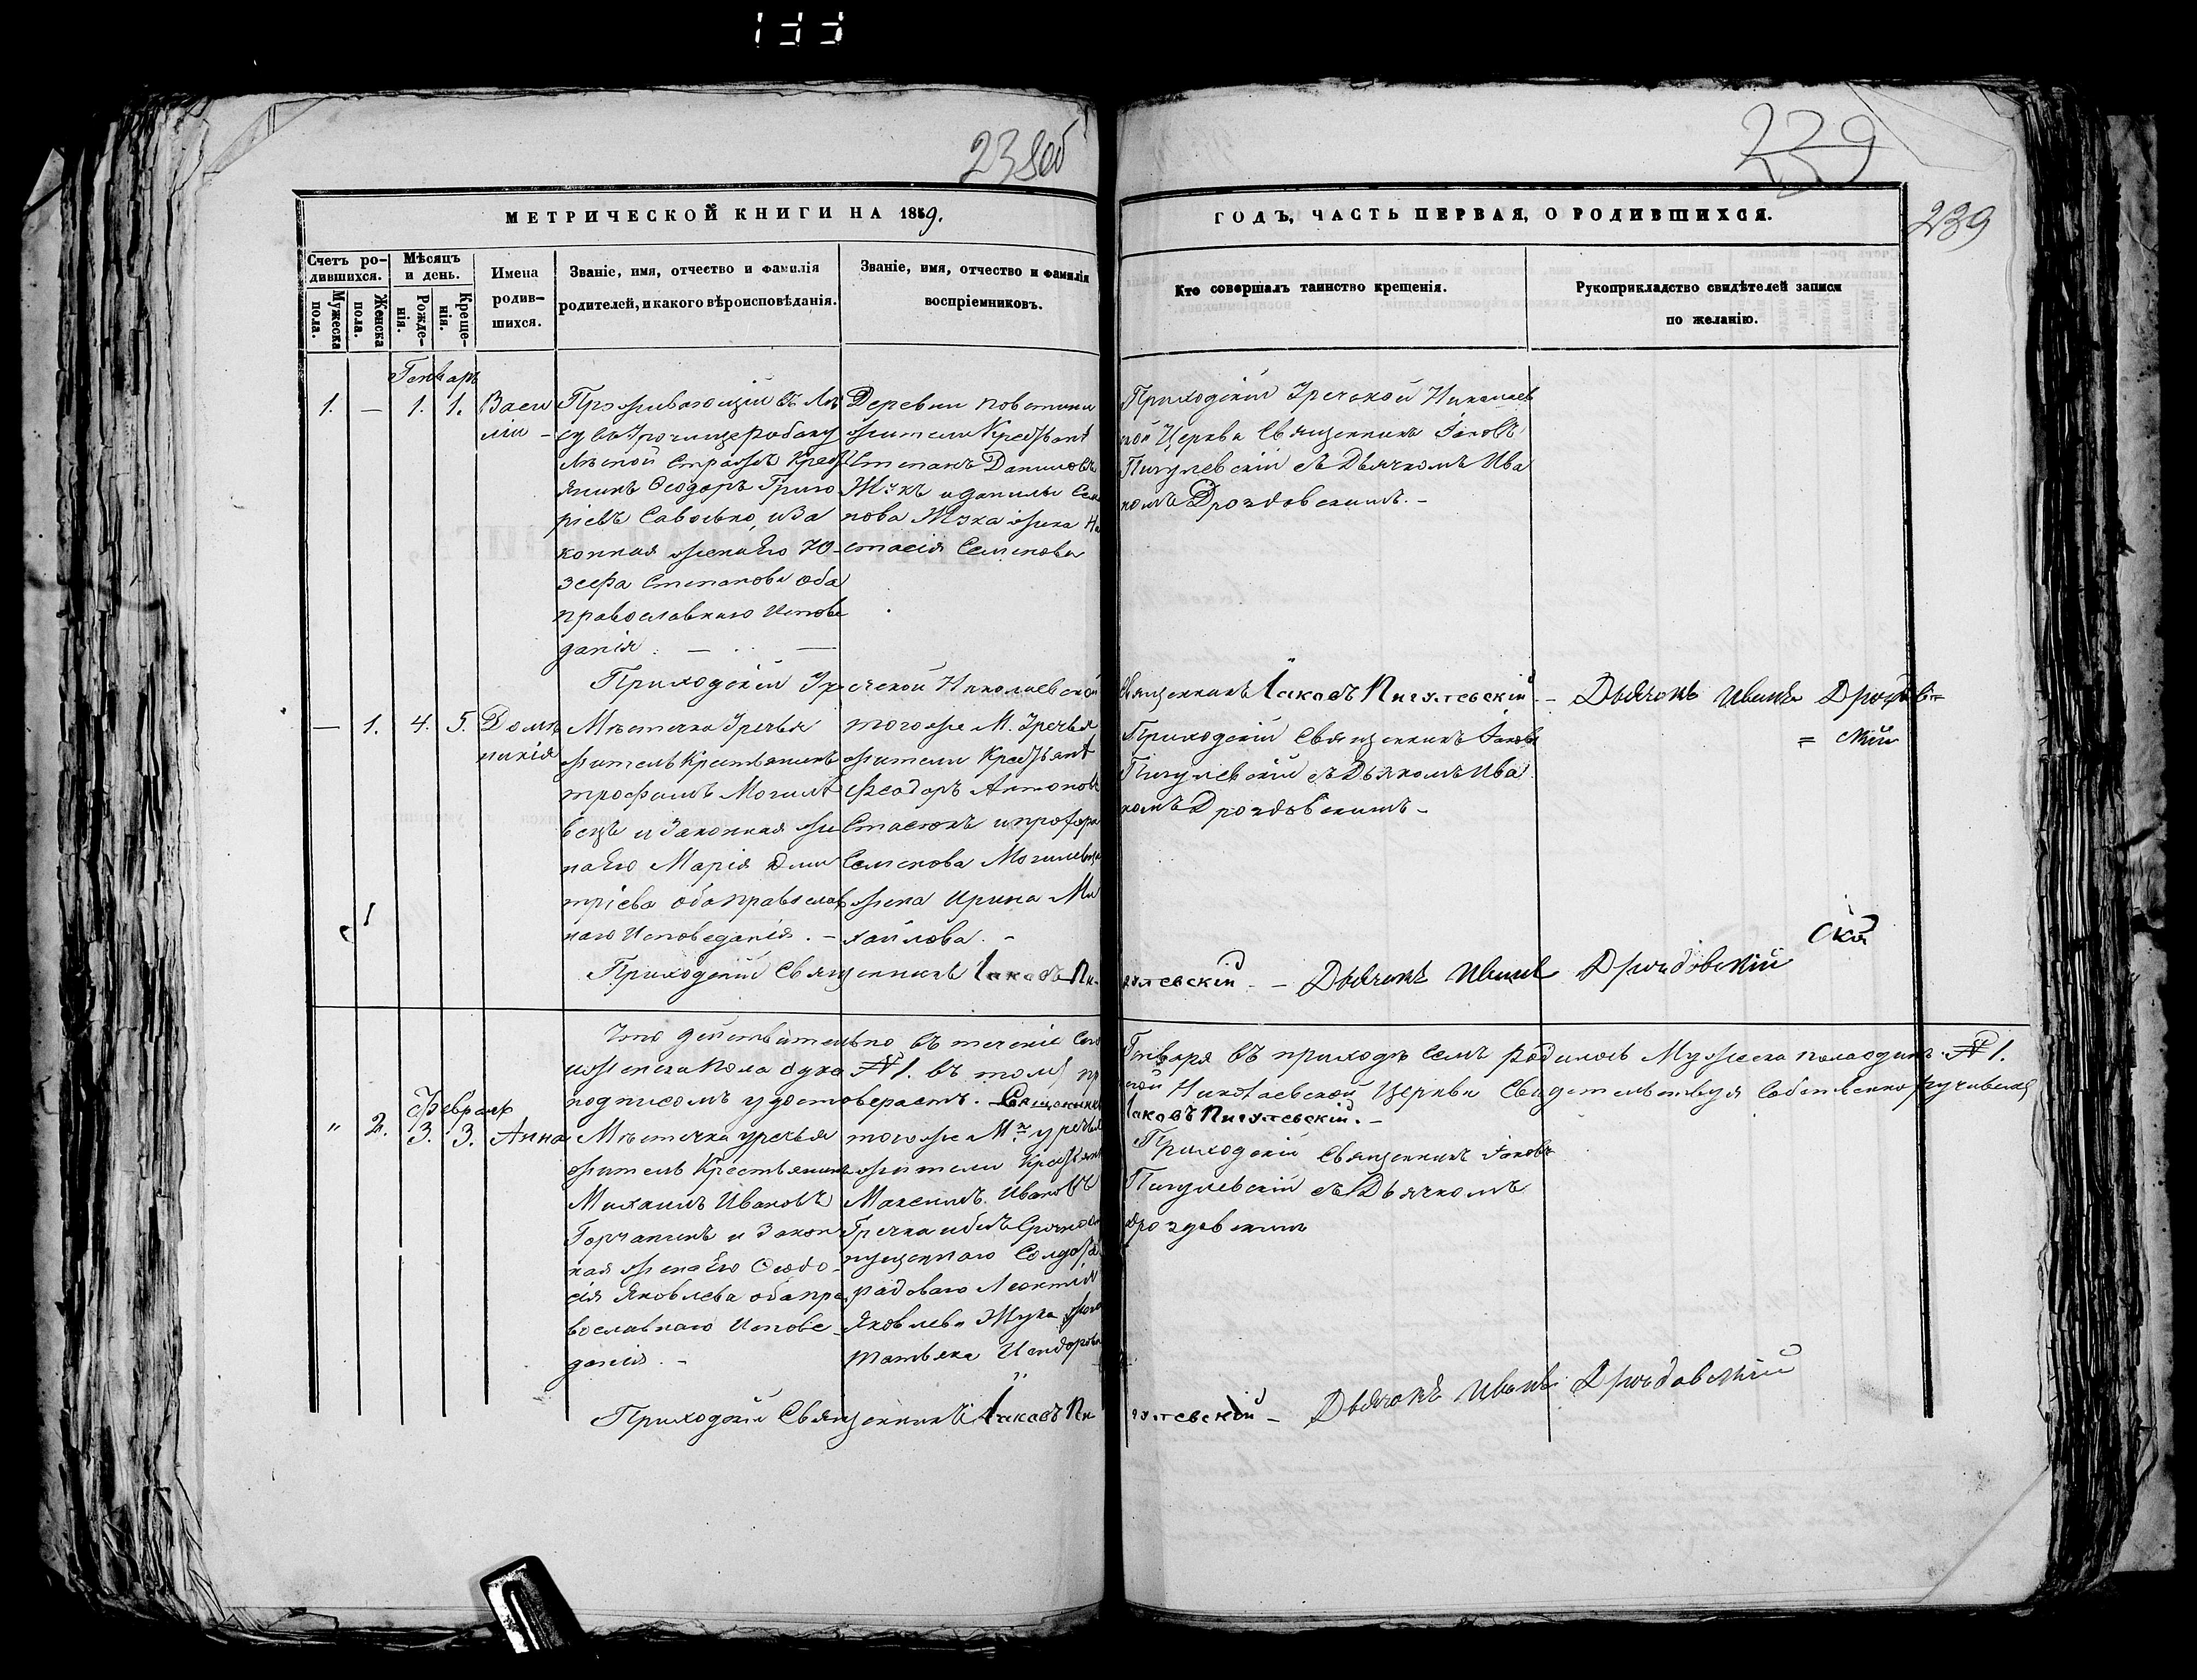 133
238об
239
239
МЕТРИЧЕСКОЙ КНИГИ НА 1859.
ГОДЪ, ЧАСТЬ ПЕРВАЯ, О РОДИВШИХСЯ.
Счетъ ро-
дившихся.
Мужеска
пола.
Женска
пола.
Мѣсяцъ
и день.
Рожде-
нія.
Креще-
нія.
Имена
родив-
шихся.
Званіе, имя, отчество и фамилія
родителей, и какого вѣроисповѣданія.
Званіе, имя, отчество и фамилія
воспріемниковъ.
Кто совершалъ таинство крещенія.
Рукоприкладство свидѣтелей записи
по желанію.
Генварь
1. — 1. 1.
Васи
лій –
Проживающій въ Лѣ
су въ
Лѣсной Стражъ Крест
янинъ Ѳеодоръ Григо
ріевъ Савосько, и за
конная жена Его Ю-
зефа Степанова оба
православнаго Испове
данія. —
Деревни
жители Крестьян
Степанъ Даниловъ
Жукъ и данилы Сем
нова Жука жена На
стасія Семенова
Приходскій Уречской Николаев
ной Церкви Священникъ Іаковъ
Пигулевскій съ Дьячкомъ Ива
номъ Дроздовскимъ. –
Приходскій Уречской Николаевской
Священникъ Іаковъ Пигулевскій. – Дьячокъ Иванъ Дроздов=
= скій
— 1. 4. 5.
Домн
никія
Мѣстечка Уречья
житель Крестьянинъ
трофимъ Могиле
вецъ и Законная же
на Его Марія Дми
тріева оба православ
наго Исповеданія. –
тогоже М. Уречья
жители Крестьян
Феодоръ Антоновъ
Стасюкъ и
Семенова Могилевца
жена Ирина Ми
хайлова. –
Приходскій Священникъ Іаковъ
Пигулевскій съ Дьячкомъ Ива
номъ Дроздовскимъ –
Приходскій Священникъ Іаковъ Пи-
гулевскій – Дьячокъ Иванъ Дроздовскій
Что действительно въ теченіе Сего
Генваря въ приходѣ семъ родилось Мужеска пола одинъ № 1.
и женска пола одна № 1. въ томъ
Николаевской Церкви Свидетельствуя Собственноручнымъ
подписомъ удостоверяетъ. Священникъ
Іаковъ Пигулевскій. –
Февраль
" 2. 3. 3. Анна
Мѣстечка уречья
житель Крестьянинъ
Михаилъ Ивановъ
Горчанинъ и Закон
ная жена Его Ѳеодо-
сія Яковлева оба пра
вославнаго Испове
данія. –
тогоже Мка уречья
жители Крестьян
Максимъ Ивановъ
Гречка и
пущеннаго Солдата
рядоваго Леонтія
Яковлева Жука жена
татьяна Исидорова
Приходскій Священникъ Іаковъ
Пигулевскій съ Дьячкомъ
Дроздовскимъ
Приходскій Священникъ Іаковъ Пи
гулевскій – Дьячокъ Иванъ Дроздовскій